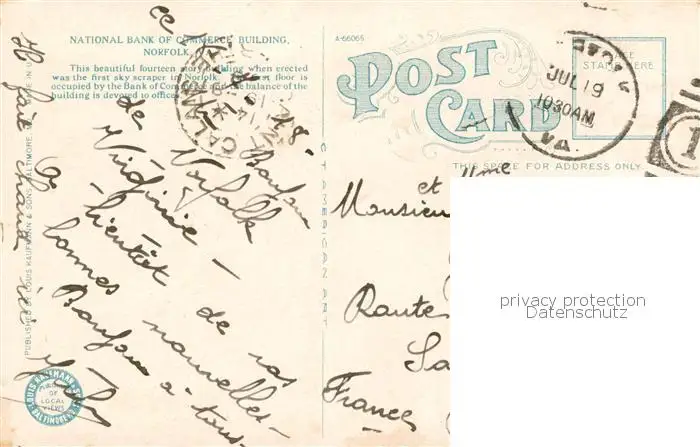 NATIONAL BANK OF COMMERCE BUILDING,
NORFOLK,
This beautiful fourteen story building when erected
was the first sky scraper in Norfolk. The first floor is
occupied by the Bank of Commerce and the balance of the
building is devoted to offices.
ce
Bonjour
de Norfolk
Virginie -
A bientôt de vos
bonnes nouvelles -
Bonjour à tous.
Il fait chaud ici
PUBLISHED BY LOUIS KAUFMANN & SONS, BALTIMORE, MD.
LOUIS KAUFMANN & SONS
OF
LOCAL
VIEWS
BALTIMORE
A-66065
POST
CARD
STAMP HERE
JUL 19
10 30 AM
VA.
THIS SPACE FOR ADDRESS ONLY
et Mme
Monsieur
Route
Sa
France
privacy protection
Datenschutz